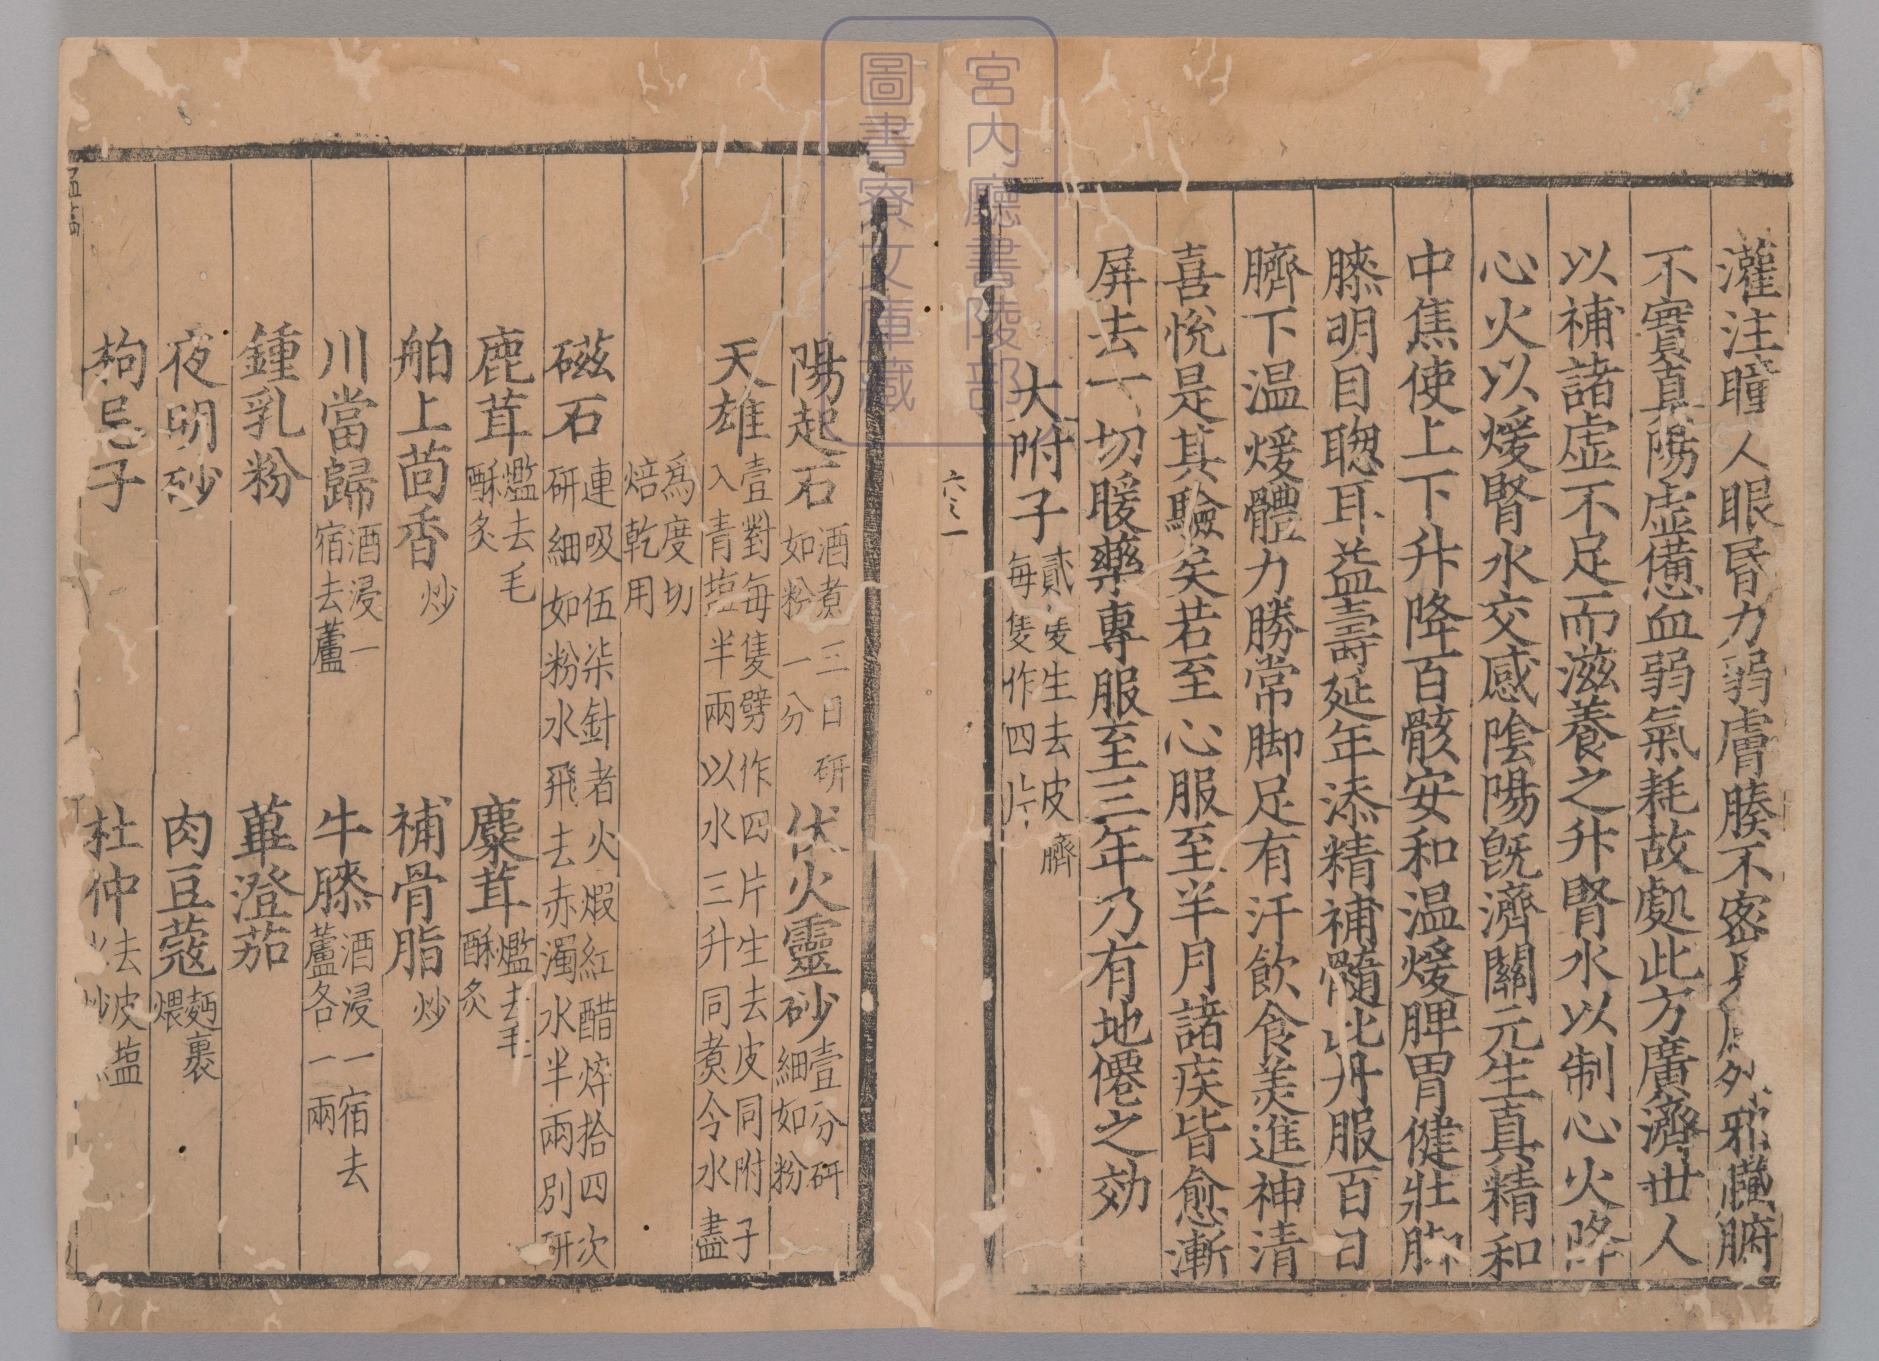 灌注瞳人眼昏力弱膚腠不密外邪臟腑
不實真陽虛憊血弱氣耗故處此方廣濟世人
以補諸虛不足而滋養之升腎水以制心火降
心火以煖腎水交感陰陽既濟關元生真精和
中焦使上下升降百骸安和温煖脾胃健壯脚
膝明目聰耳益壽延年添精補髓此丹服百日
臍下温煖體力勝常脚足有汗飲食美進神清
喜悅是其驗矣若至心服至半月諸疾皆愈漸
屏去一切暖藥專服至三年乃有地僊之効
大附子貳隻生去皮臍
每隻作四片
六之一
宮内廳書陵部
圖書寮文庫藏
陽起石酒煮三日研
如粉一分
伏火靈砂壹分研
細如粉
天雄壹對每隻劈作四片生去皮同附子
入青塩半兩以水三升同煮令水盡
為度切
焙乾用
磁石連吸伍柒針者火煅紅醋焠拾四次
研細如粉水飛去赤濁水半兩別研
鹿茸爁去毛
酥炙
麋茸爁去毛
酥炙
舶上茴香炒
補骨脂炒
川當歸酒浸一
宿去蘆
牛膝酒浸一宿去
蘆各一兩
鍾乳粉
蓽澄茄
夜明砂
肉豆蔻麵裹
煨
枸杞子
杜仲去皮塩
炒